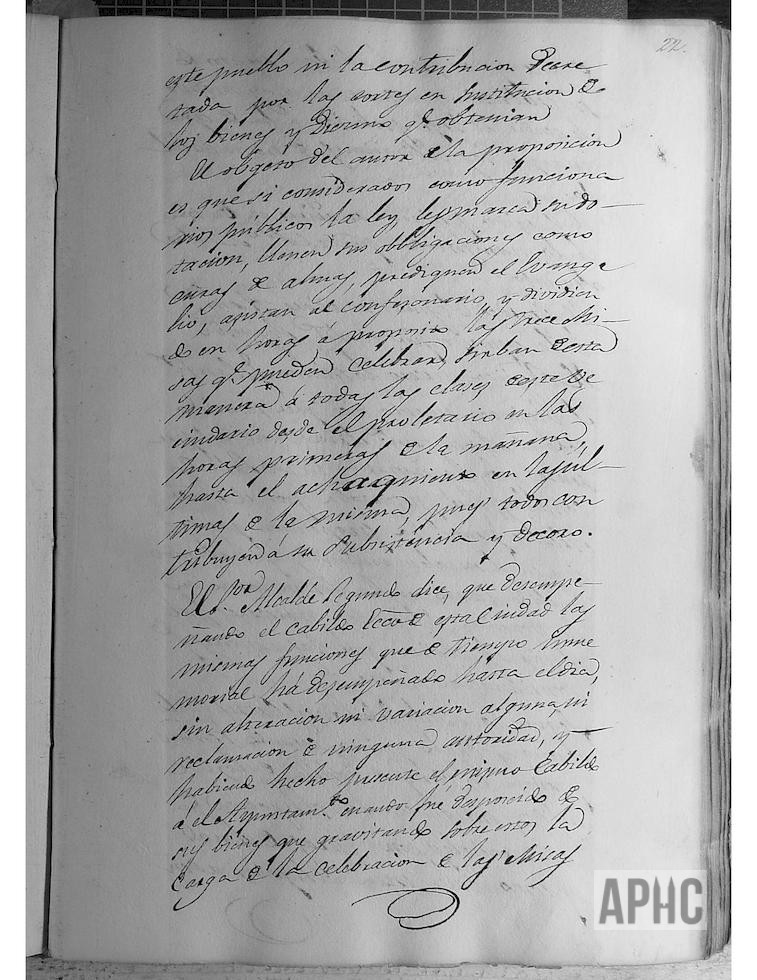 22.
este pueblo ni la contribucion decre
tada por las cortes en Institucion de
los bienes y Diezmo q.e obtenian
El obgeto del autor de la proposicion
es que si considerados como funciona
rios públicos la ley les marca su do-
tacion, llenen sus obbligaciones como
curas de almas, prediquen el Evange
lio, asistan al confesonario, y dividien
do en horas á proposito las trece Mi-
sas q.e pueden celebrar, sirban de esta
manera á todas las clases de este Ve
cindario desde el proletario en las
horas primeras de la mañana,
hasta el achaquiento en las úl-
timas de la misma, pues todos con
tribuyen á su subsistencia y decoro.
El S.or Alcalde Segundo dice, que desempe-
ñando el cabildo Ecco de esta Ciudad las
mismas funciones que de tiempo inme
morial há desempeñado hasta el dia,
sin alteracion ni variacion alguna, ni
reclamacion de ninguna autoridad, y
habiendo hecho presente el mismo Cabildo
a el Ayuntam.to cuando fué desposeido de
sus bienes que gravitando sobre estos la
Carga de la celebracion de las Misas
APHC